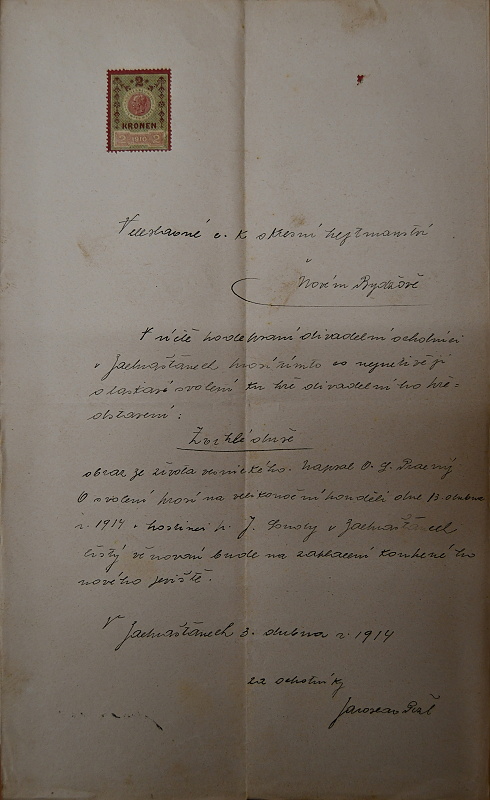 2
KRONEN
1910
Veleslavné c. k okresní hejtmanství
v
Novém Bydžově
V úctě podepsaní divadelní ochotníci
v Zachrašťanech prosí tímto co nejuctivěji
o laskavé svolení ku hře divadelního pře-
dstavení:
Zvrhlé duše
obraz ze života vesnického. Napsal O. S.
O svolení prosí na velikonoční pondělí dne 13. dubna
r. 1914 v hostinci p. J. v Zachrašťanech
čistý věnován bude na zaplacení koupeného
nového jeviště.
V Zachrašťanech 3. dubna r. 1914
za ochotníky
Jaroslav